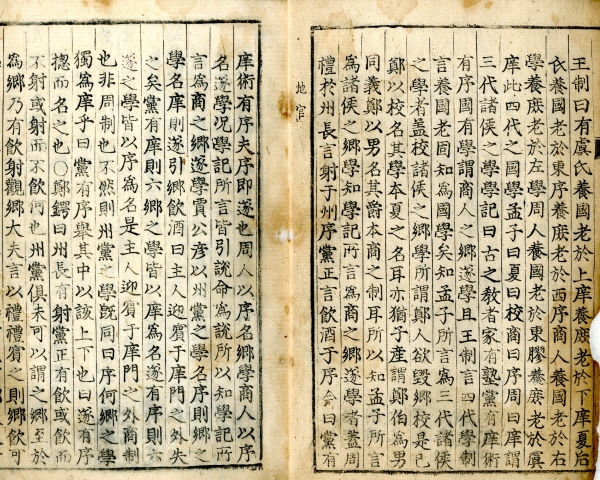 王制曰有虞氏養國老於上庠養庶老於下庠夏后
氏養國老於東序養庶老於西序商人養國老於右
學養庶老於左學周人養國老於東膠養庶老於虞
庠此四代之國學孟子曰夏曰校商曰序周曰庠謂
三代諸侯之學學記曰古之教者家有塾黨有庠術
有序國有學謂商人之鄉遂學且王制言四代學制
言養國老固知為國學矣知孟子所言為三代諸侯
之學者盖校諸侯之鄉學所謂鄭人欲毀鄉校是已
鄭以校名其學本夏之名耳亦猶子産謂鄭伯為男
同義鄭以男名其爵本商之制耳所以知孟子所言
為諸侯之鄉學知學記所言為商之鄉遂學者盖周
禮於州長言射于州序黨正言飲酒于序今曰黨有
地官
庠術有序夫序即遂也周人以序名鄉學商人以序
名遂學況學記所言皆引說命為說所以知學記所
言為商之鄉遂學賈公彦以州黨之學名序則鄉之
學名庠則遂引鄉飲酒曰主人迎賓于庠門之外失
之矣黨有庠則六鄉之學皆以庠為名遂有序則六
遂之學皆以序為名是主人迎賓于庠門之外商制
也非周制也不然則州黨之學既同曰序何鄉之學
獨為庠乎曰黨有序舉其中以該上下也曰遂有序
摠而名之也○鄭鍔曰州長有射黨正有飲或飲而
不射或射而不飲何也州黨俱未可以謂之鄉至於
為鄉乃有飲射觀鄉大夫言以禮禮賓之則鄉飲可